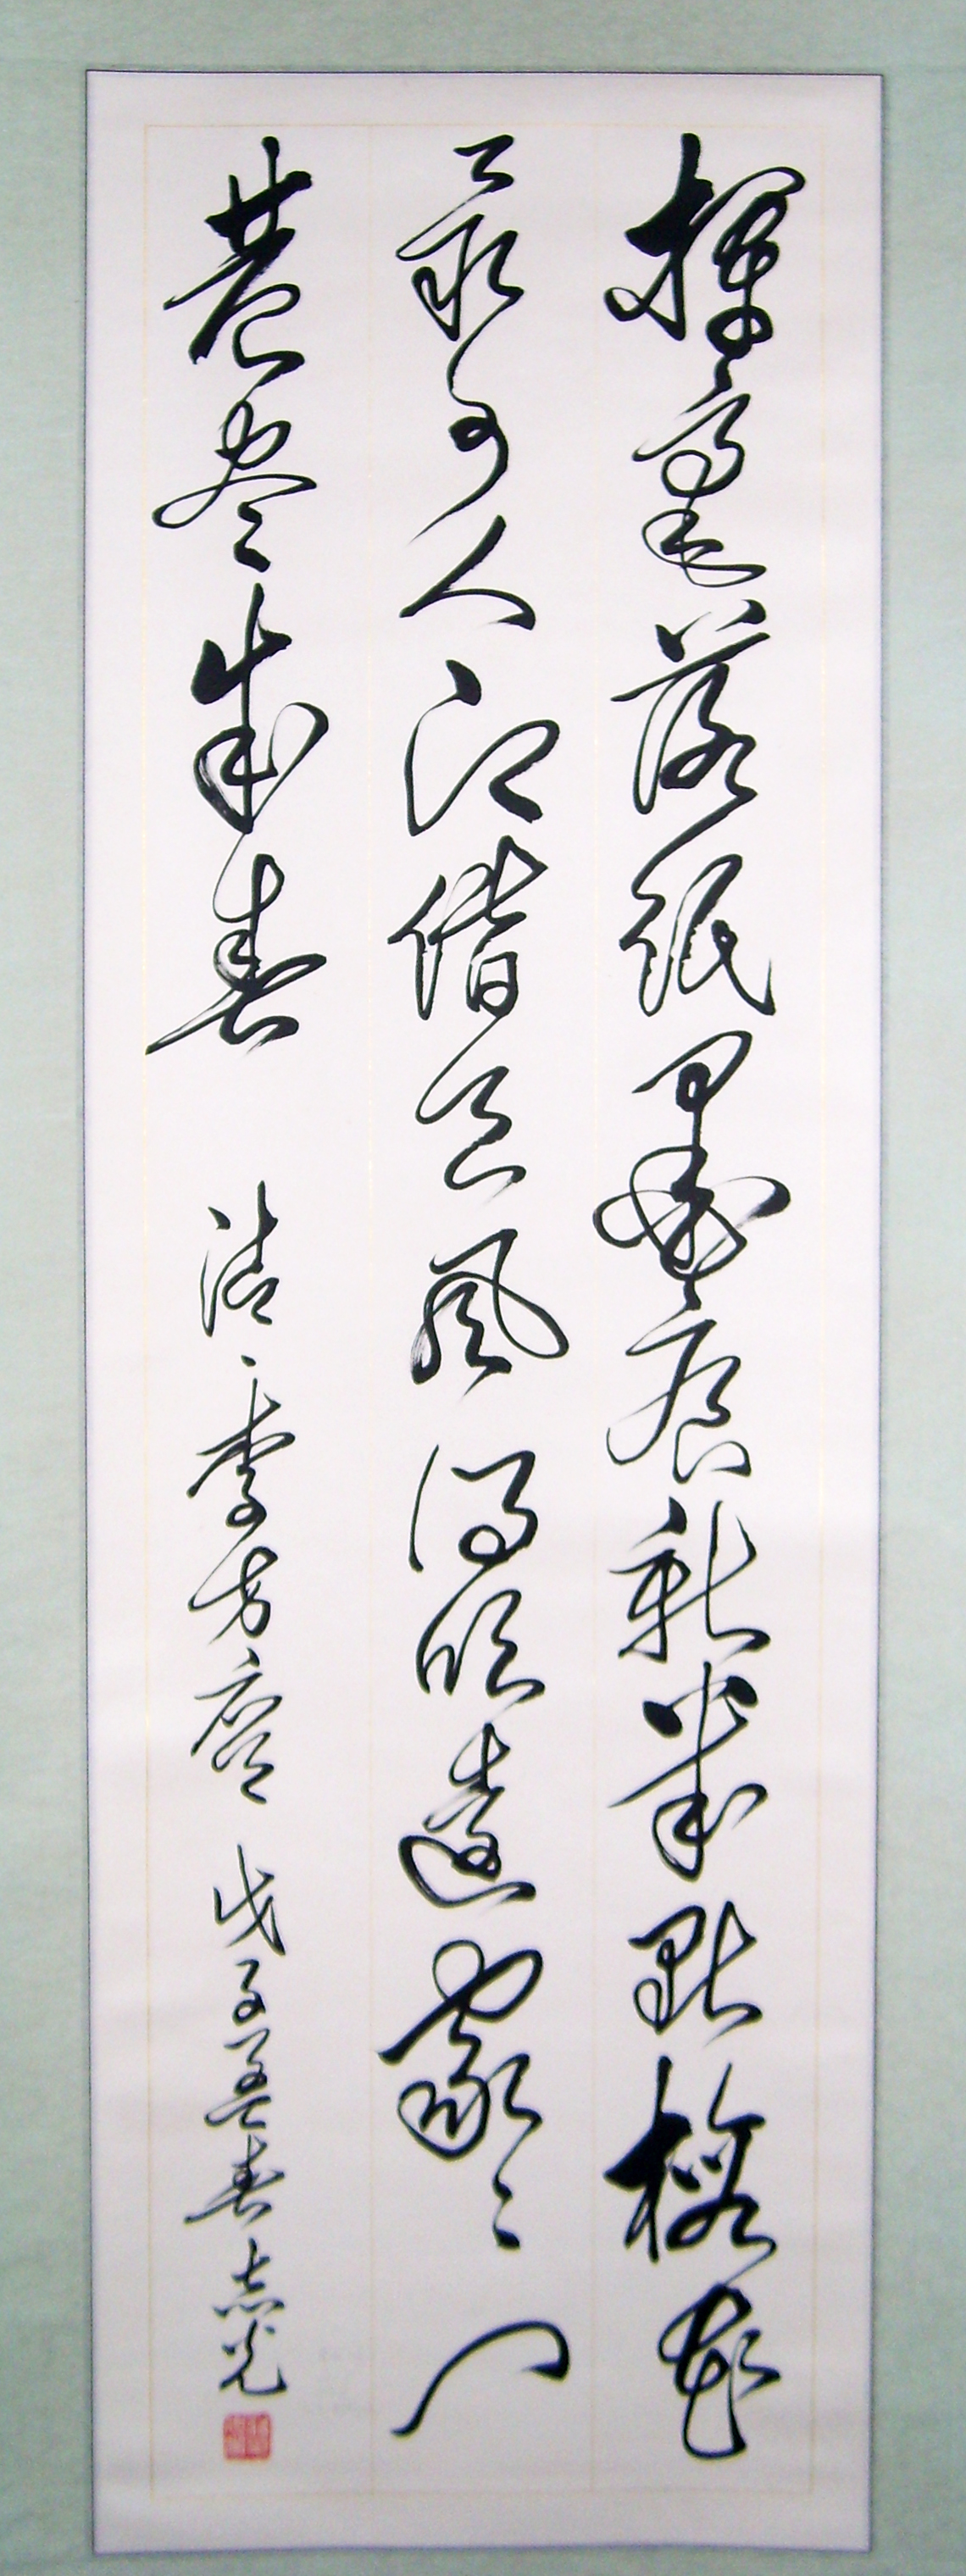 揮毫落紙墨痕新幾點梅花
最可人願借天風得吹遠家々門
巷盡成春 清·李方膺 戊子孟春志光